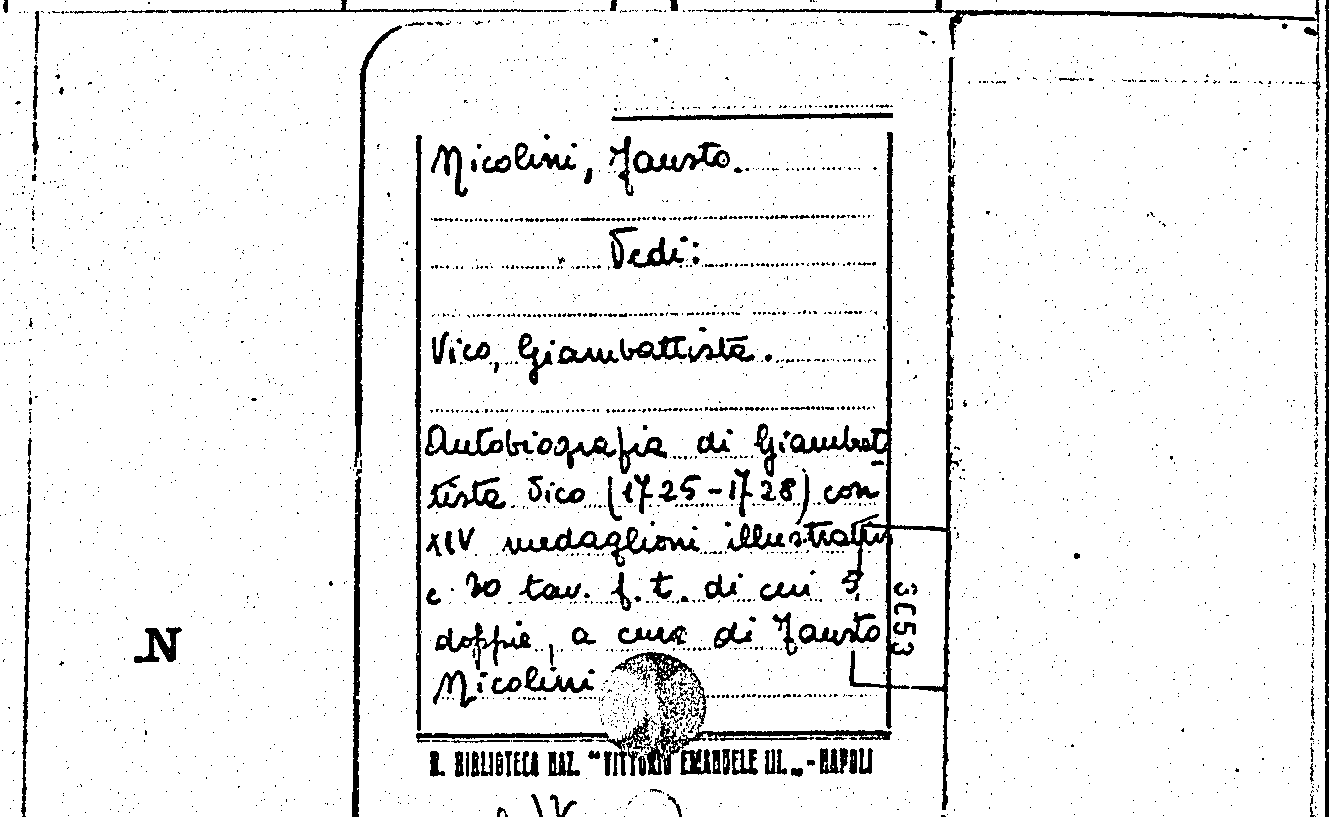 Nicolini, Fausto.
Vedi:
Vico, Giambattista.
Autobiografia di Giambat
tista Vico (1725-1728) con
XIV medaglioni illustrativi
e 30 tav. f. t. di cui 5
doppie, a cura di Fausto
Nicolini
3053
N
R. BIBLIOTECA NAZ. "VITTORIO EMANUELE III." - NAPOLI